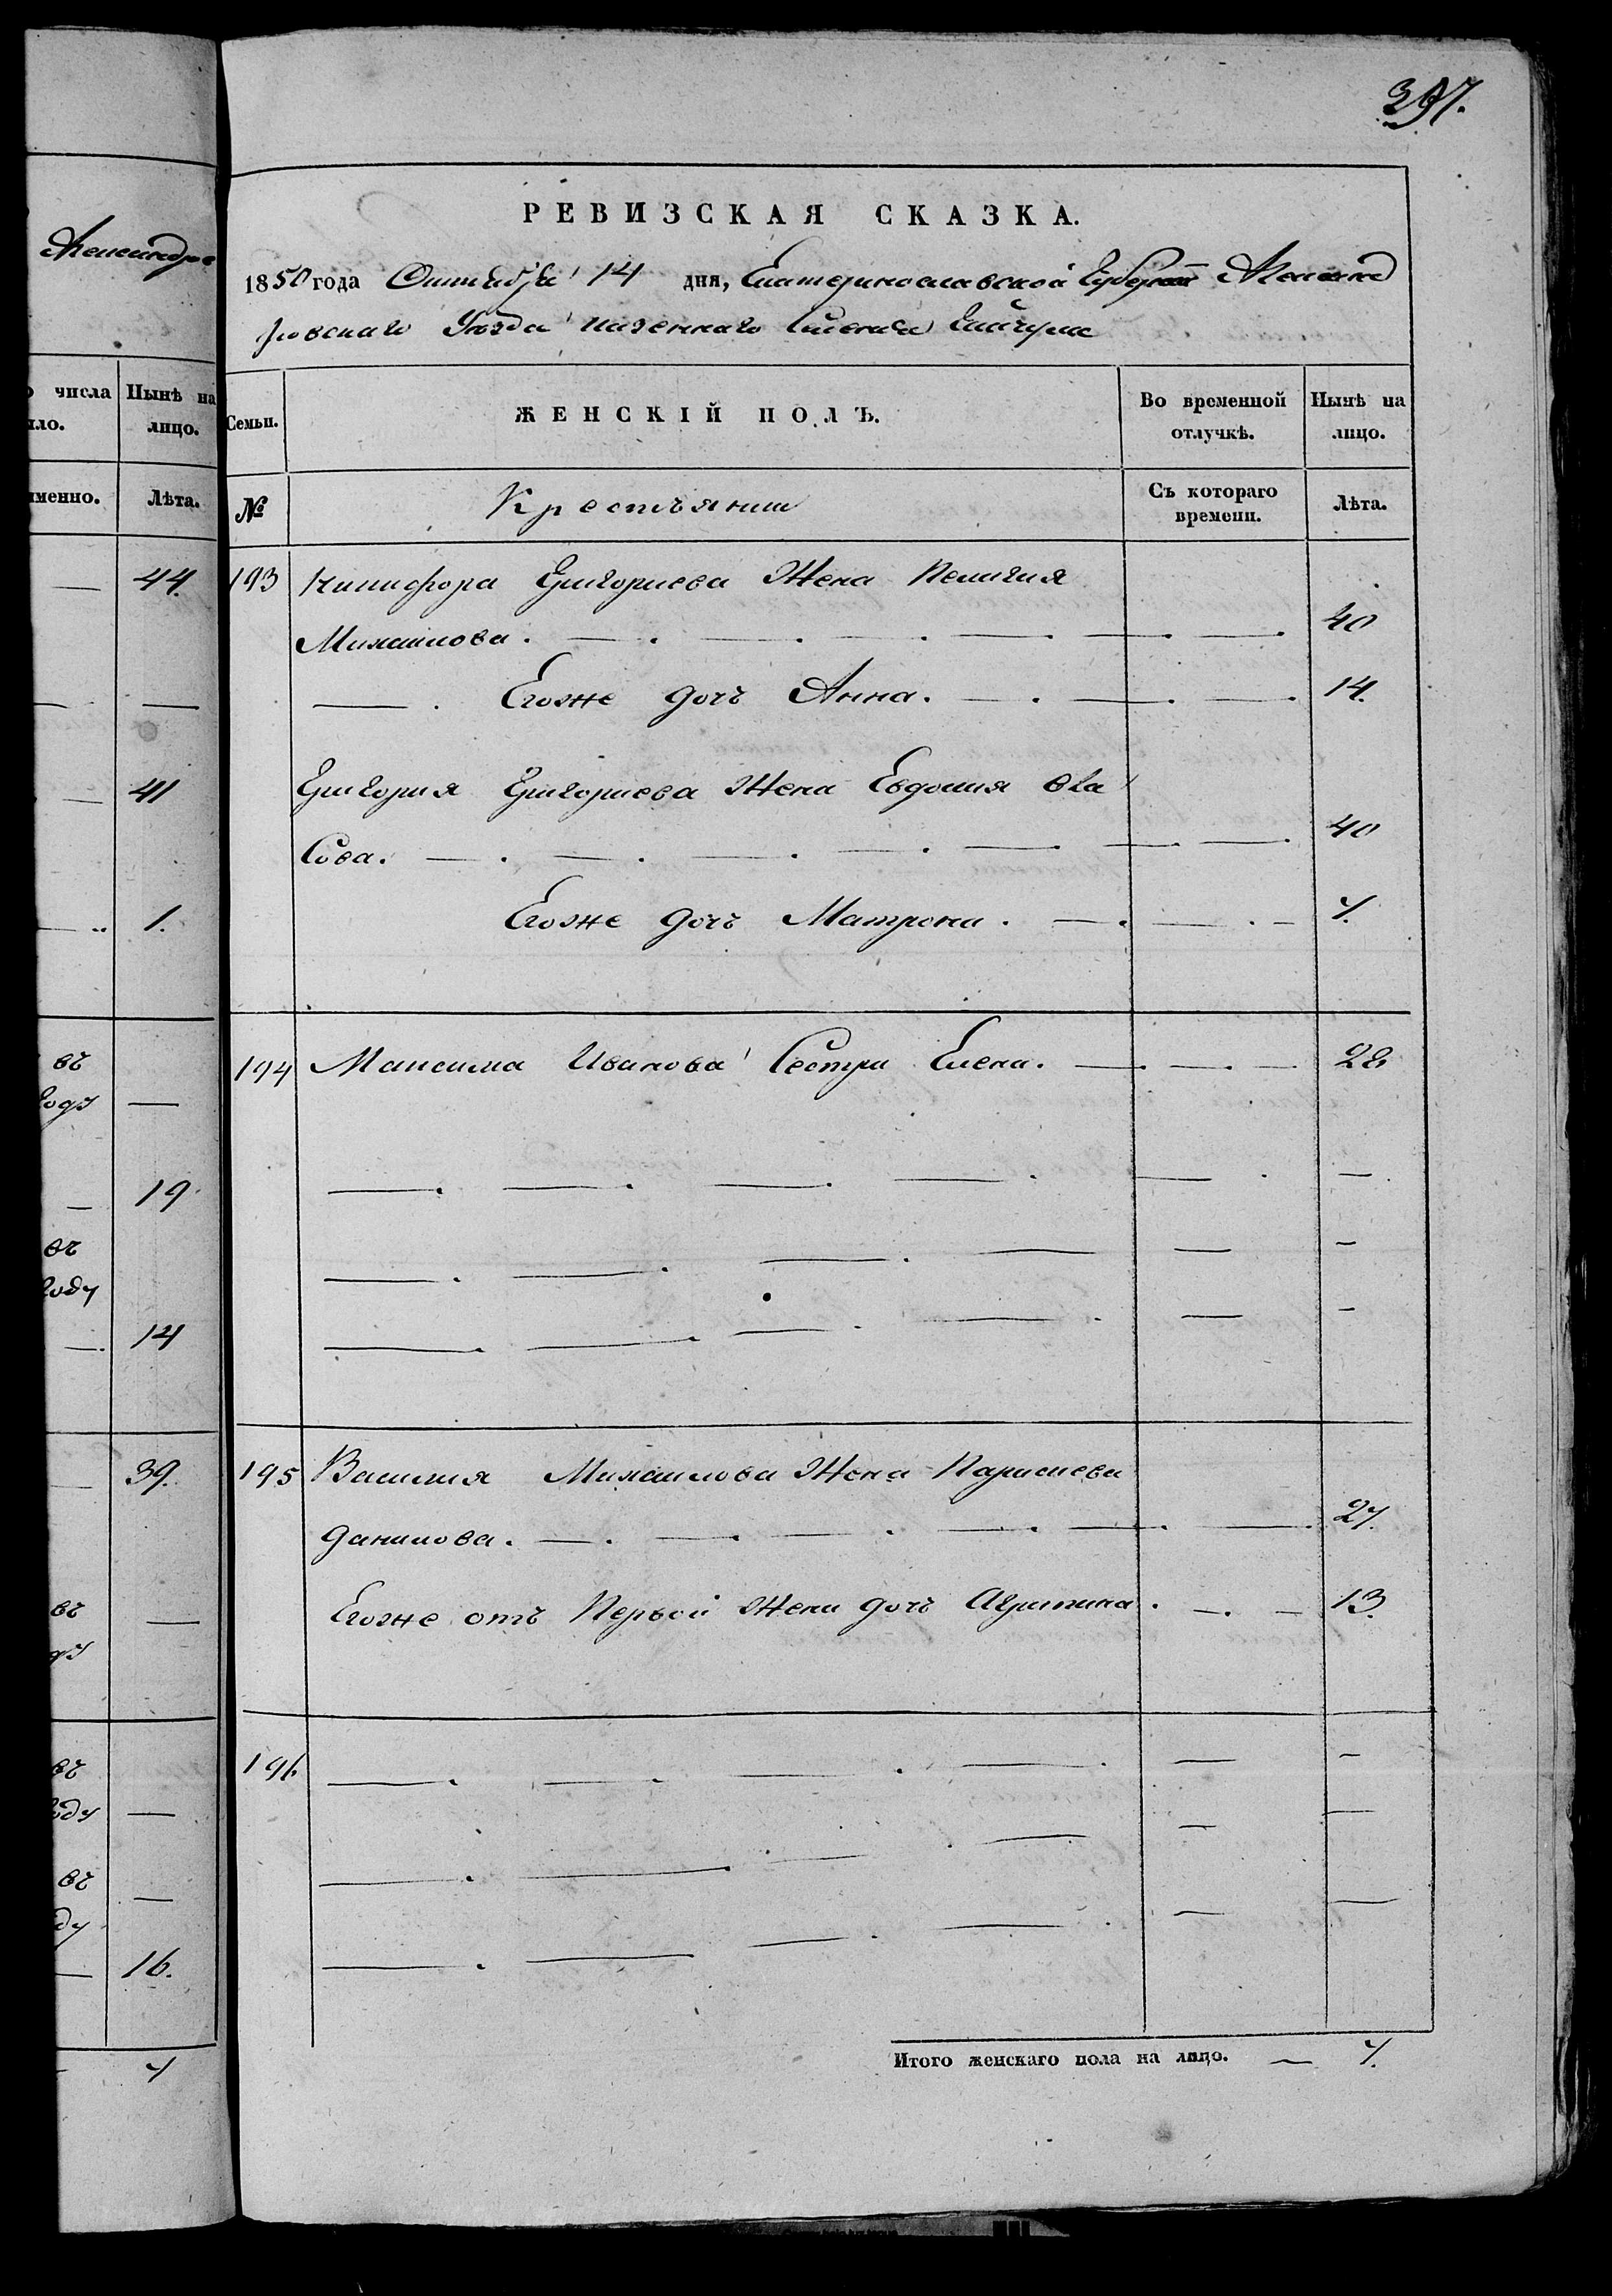 397.
Александро
числа
Нынѣ на
ло.
лицо.
именно.
Лѣта.
44
41
1.
въ
году
19
въ
году
14
39.
въ
въ
въ
16.
7
РЕВИЗСКАЯ СКАЗКА.
1850 года Октября 14 дня, Екатеринославской Губернии Александ
ровскаго Уезда казеннаго
Семьи. ЖЕНСКІЙ ПОЛЪ. Во временной отлучкѣ. Нынѣ на лицо.
№ Крестьянки Съ котораго времени. Лѣта.
193 Никифора Григориева Жена Пелагия
Михаилова. 40
Егоже дочь Анна. 14.
Григория Григориева Жена Евдокия Вла
Сова. 40
Егоже дочь Матрона. 7.
194 Максима Иванова Сестра Елена. 28
195 Василия Михаилова Жена Парасцева
данилова. 27.
Егоже отъ Первой Жены дочь Агрипина. 13.
196
Итого женскаго пола на лицо. — 7.